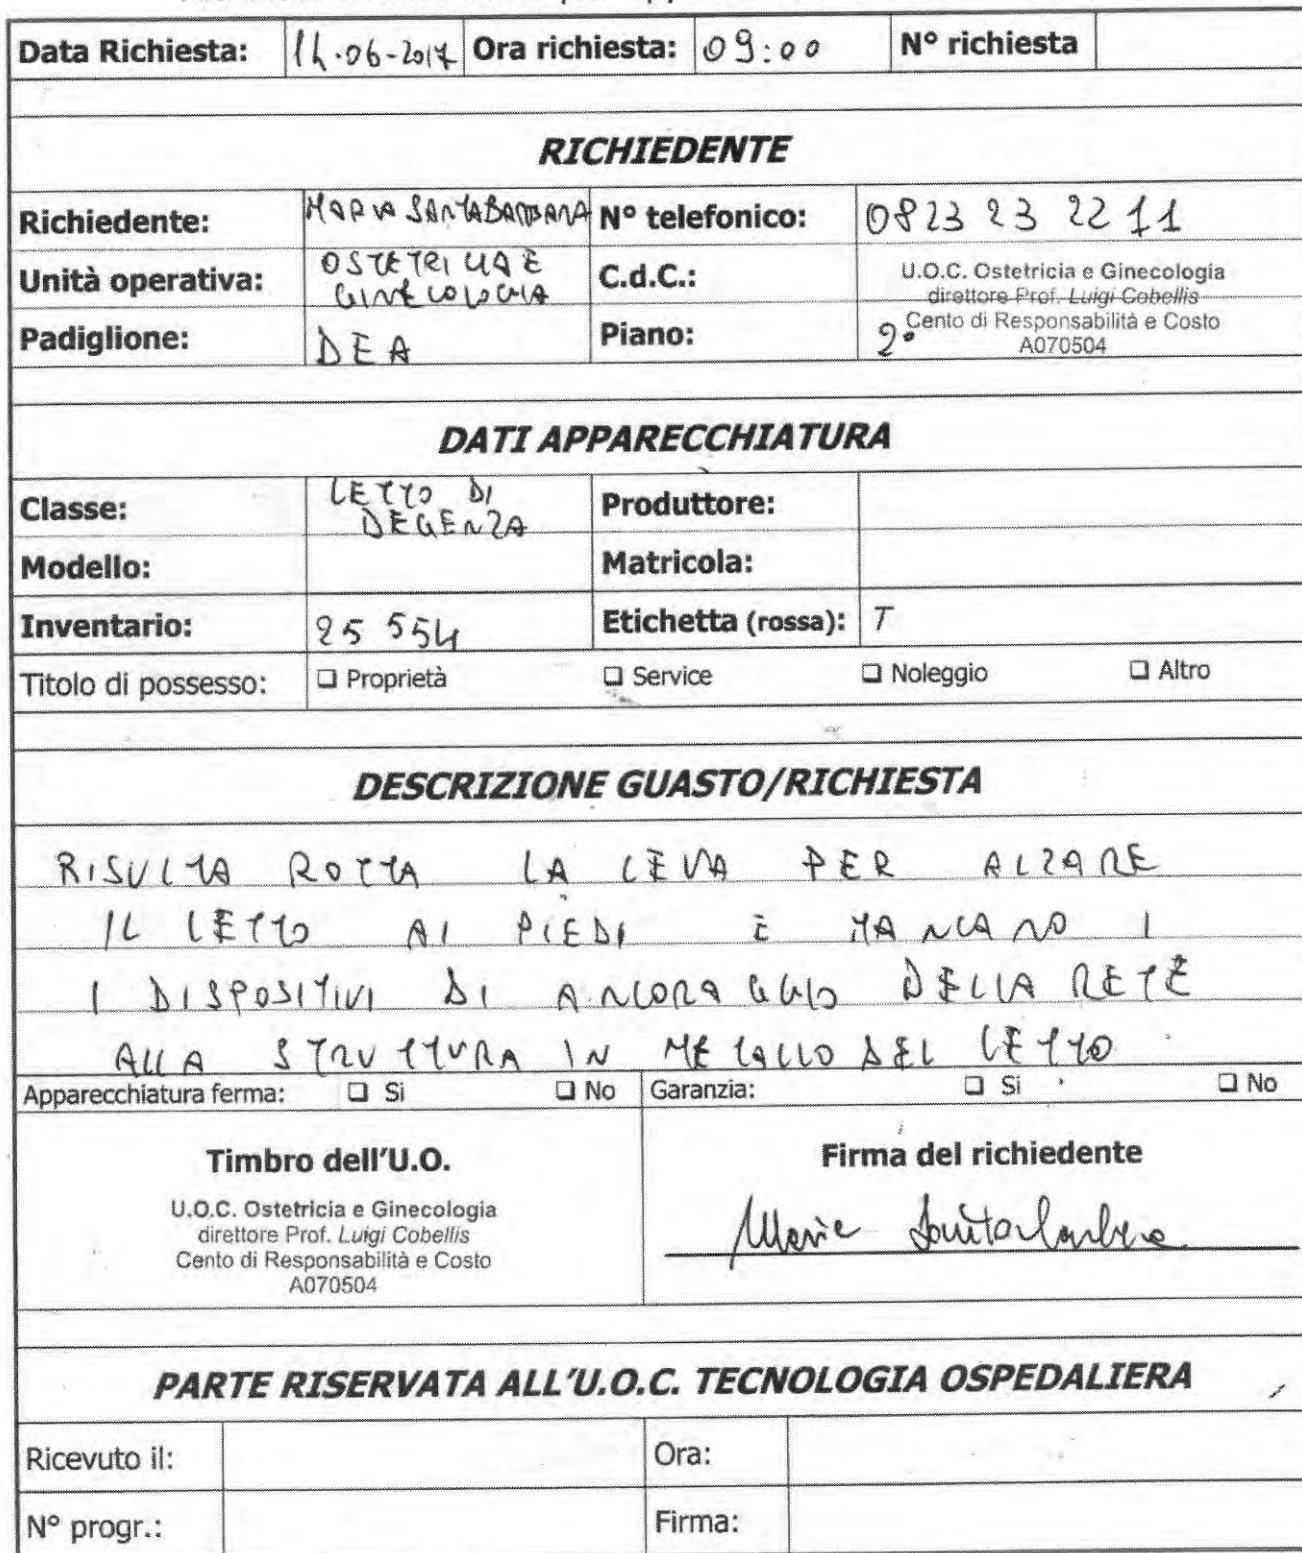 Data Richiesta: 14-06-2017 Ora richiesta: 09:00 N° richiesta
RICHIEDENTE
Richiedente: MARIA SANTABARBARA N° telefonico: 0823 23 2211
Unità operativa: OSTETRICIA E GINECOLOGIA C.d.C.: U.O.C. Ostetricia e Ginecologia
direttore Prof. Luigi Cobellis
Cento di Responsabilità e Costo
A070504
Padiglione: DEA Piano: 2°
DATI APPARECCHIATURA
Classe: LETTO DI DEGENZA Produttore:
Modello: Matricola:
Inventario: 25 554 Etichetta (rossa): T
Titolo di possesso: ❑ Proprietà ❑ Service ❑ Noleggio ❑ Altro
DESCRIZIONE GUASTO/RICHIESTA
RISULTA ROTTA LA LEVA PER ALZARE
IL LETTO AI PIEDI E MANCANO I
I DISPOSITIVI DI ANCORAGGIO DELLA RETE
ALLA STRUTTURA IN METALLO DEL LETTO
Apparecchiatura ferma: ❑ Si ❑ No Garanzia: ❑ Si ❑ No
Timbro dell'U.O. Firma del richiedente
U.O.C. Ostetricia e Ginecologia
direttore Prof. Luigi Cobellis
Cento di Responsabilità e Costo
A070504
Maria Santabarbara
PARTE RISERVATA ALL'U.O.C. TECNOLOGIA OSPEDALIERA
Ricevuto il: Ora:
N° progr.: Firma: